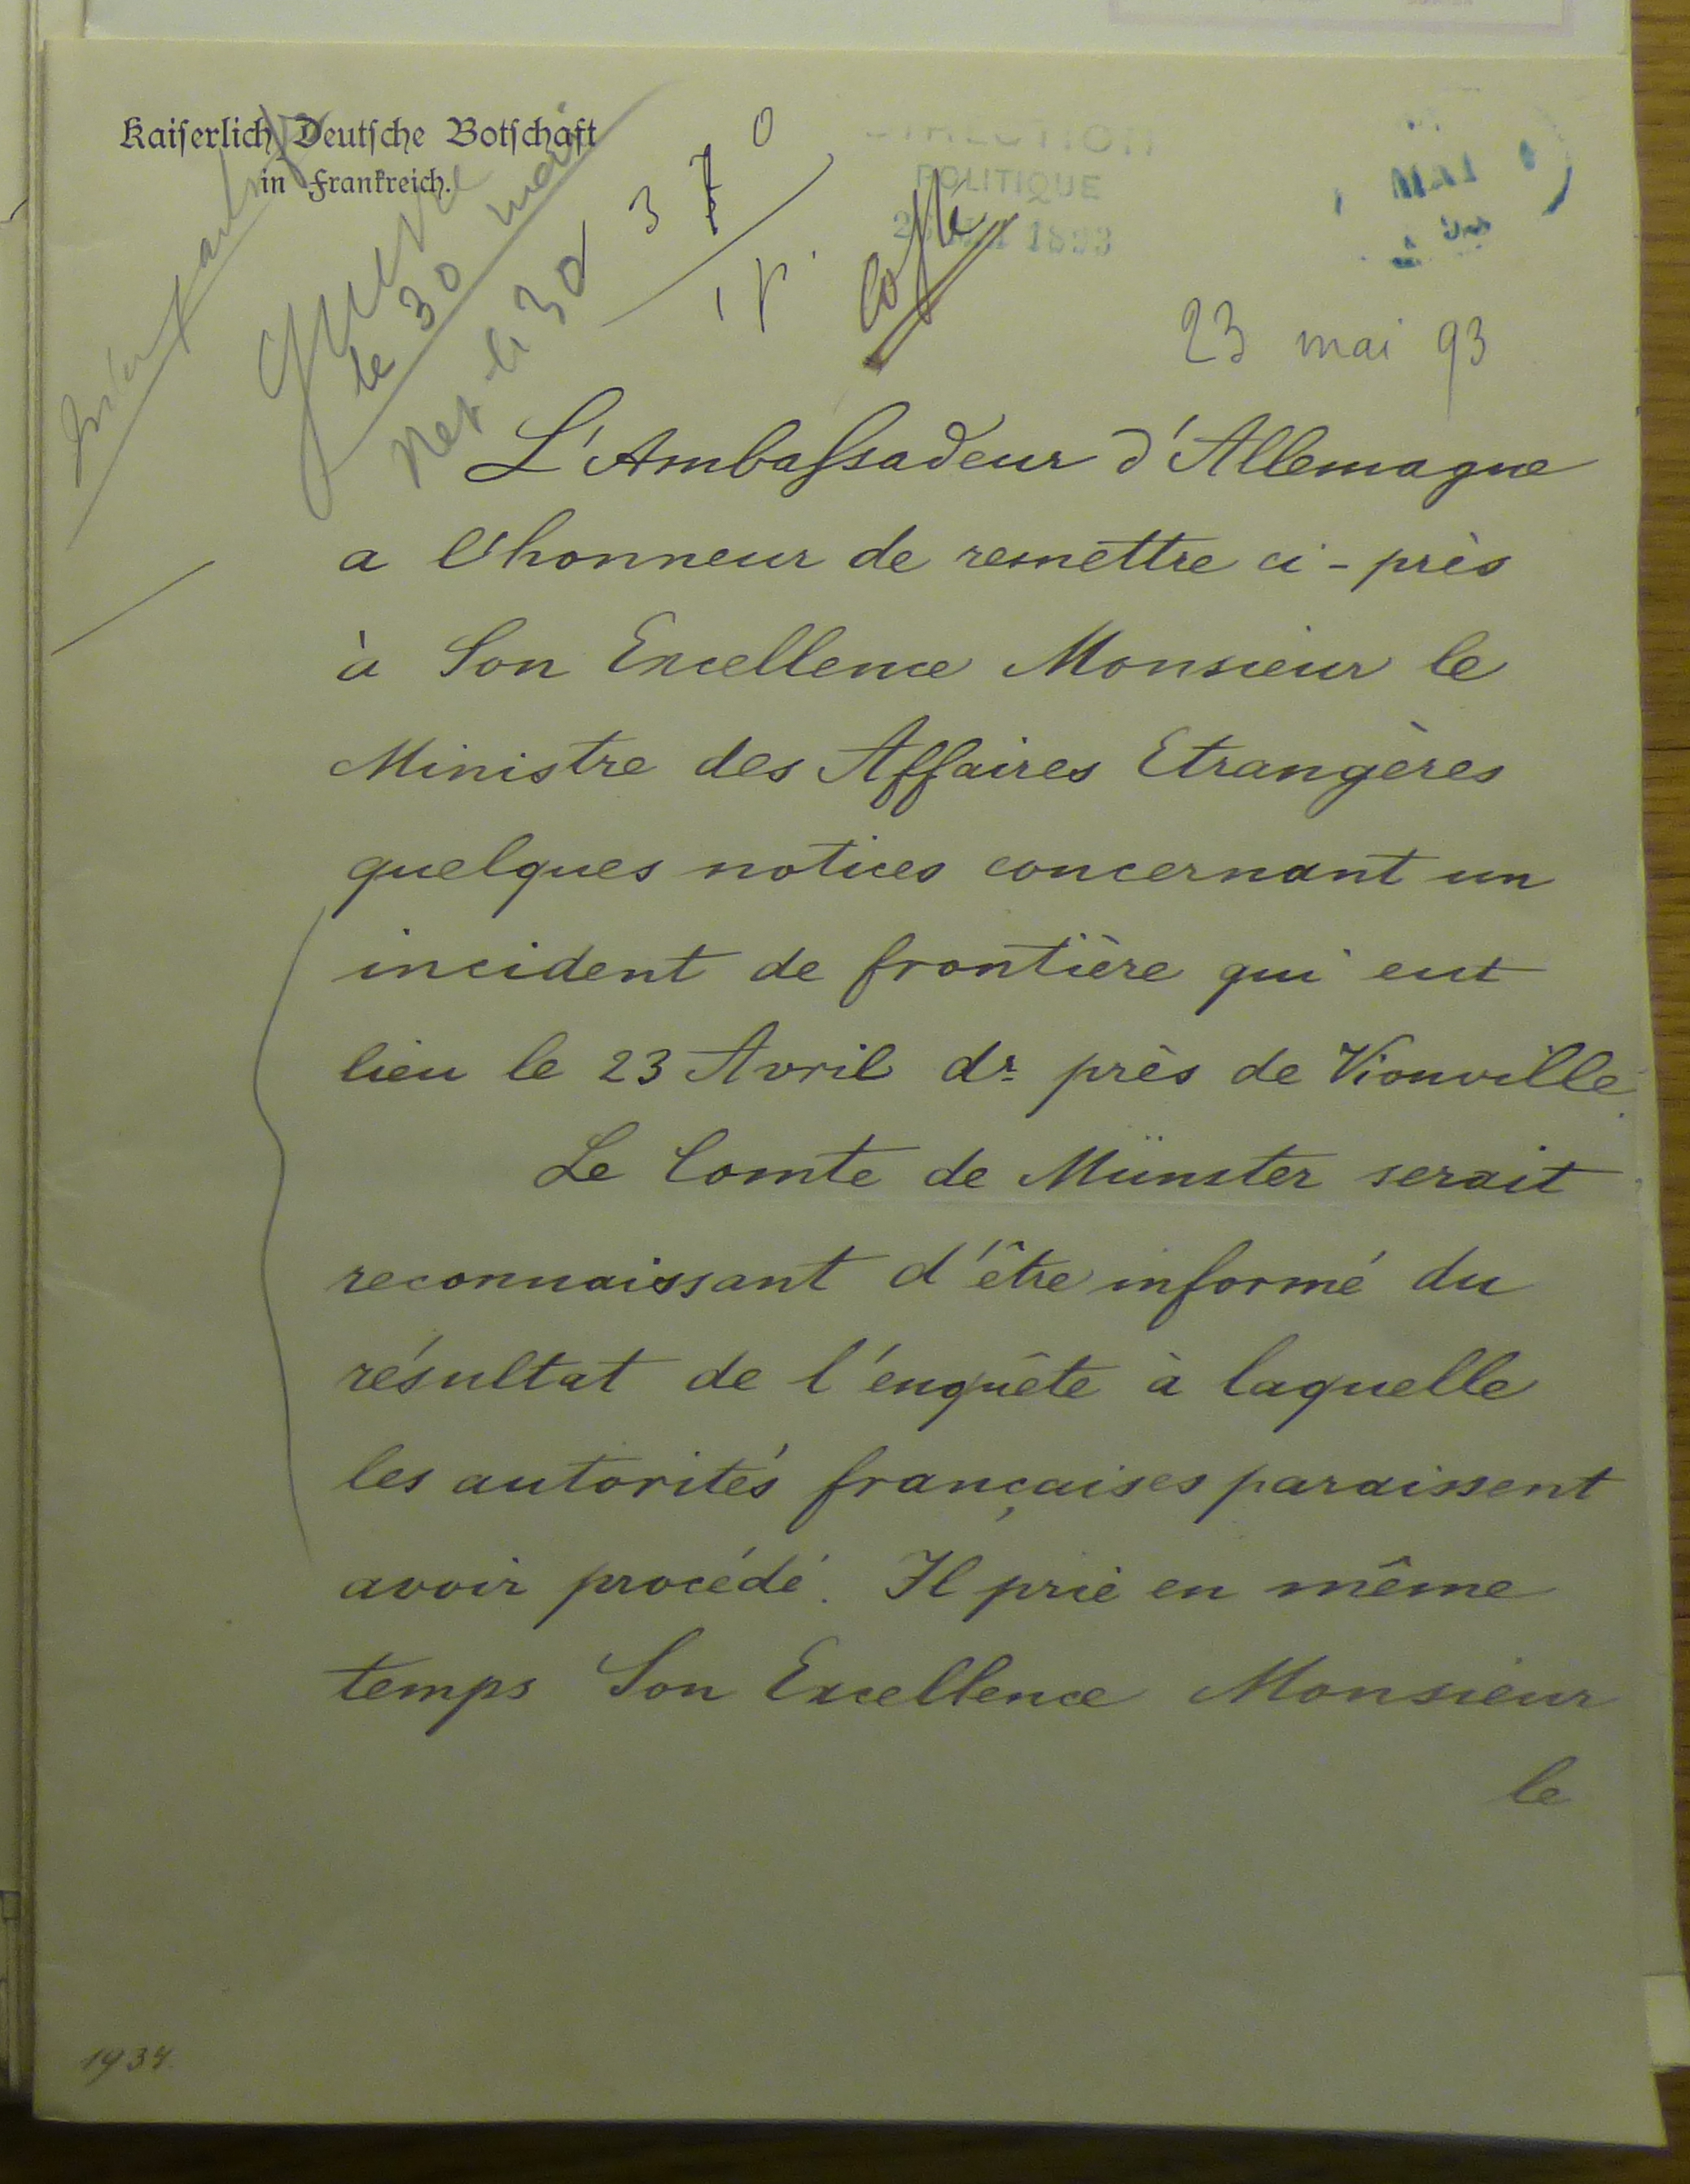 Kaiserlich Deutsche Botschaft
in Frankreich.
Guerre
le 30 mai
370
DIRECTION
POLITIQUE
MAI 1893
Copie
23 mai 93
L'Ambassadeur d'Allemagne
a l'honneur de remettre ci-près
à Son Excellence Monsieur le
Ministre des Affaires Etrangères
quelques notices concernant un
incident de frontière qui eut
lieu le 23 Avril dr. près de Vionville.
Le Comte de Münster serait
reconnaissant d'être informé du
résultat de l'enquête à laquelle
les autorités françaises paraissent
avoir procédé. Il prie en même
temps Son Excellence Monsieur
le
1934.